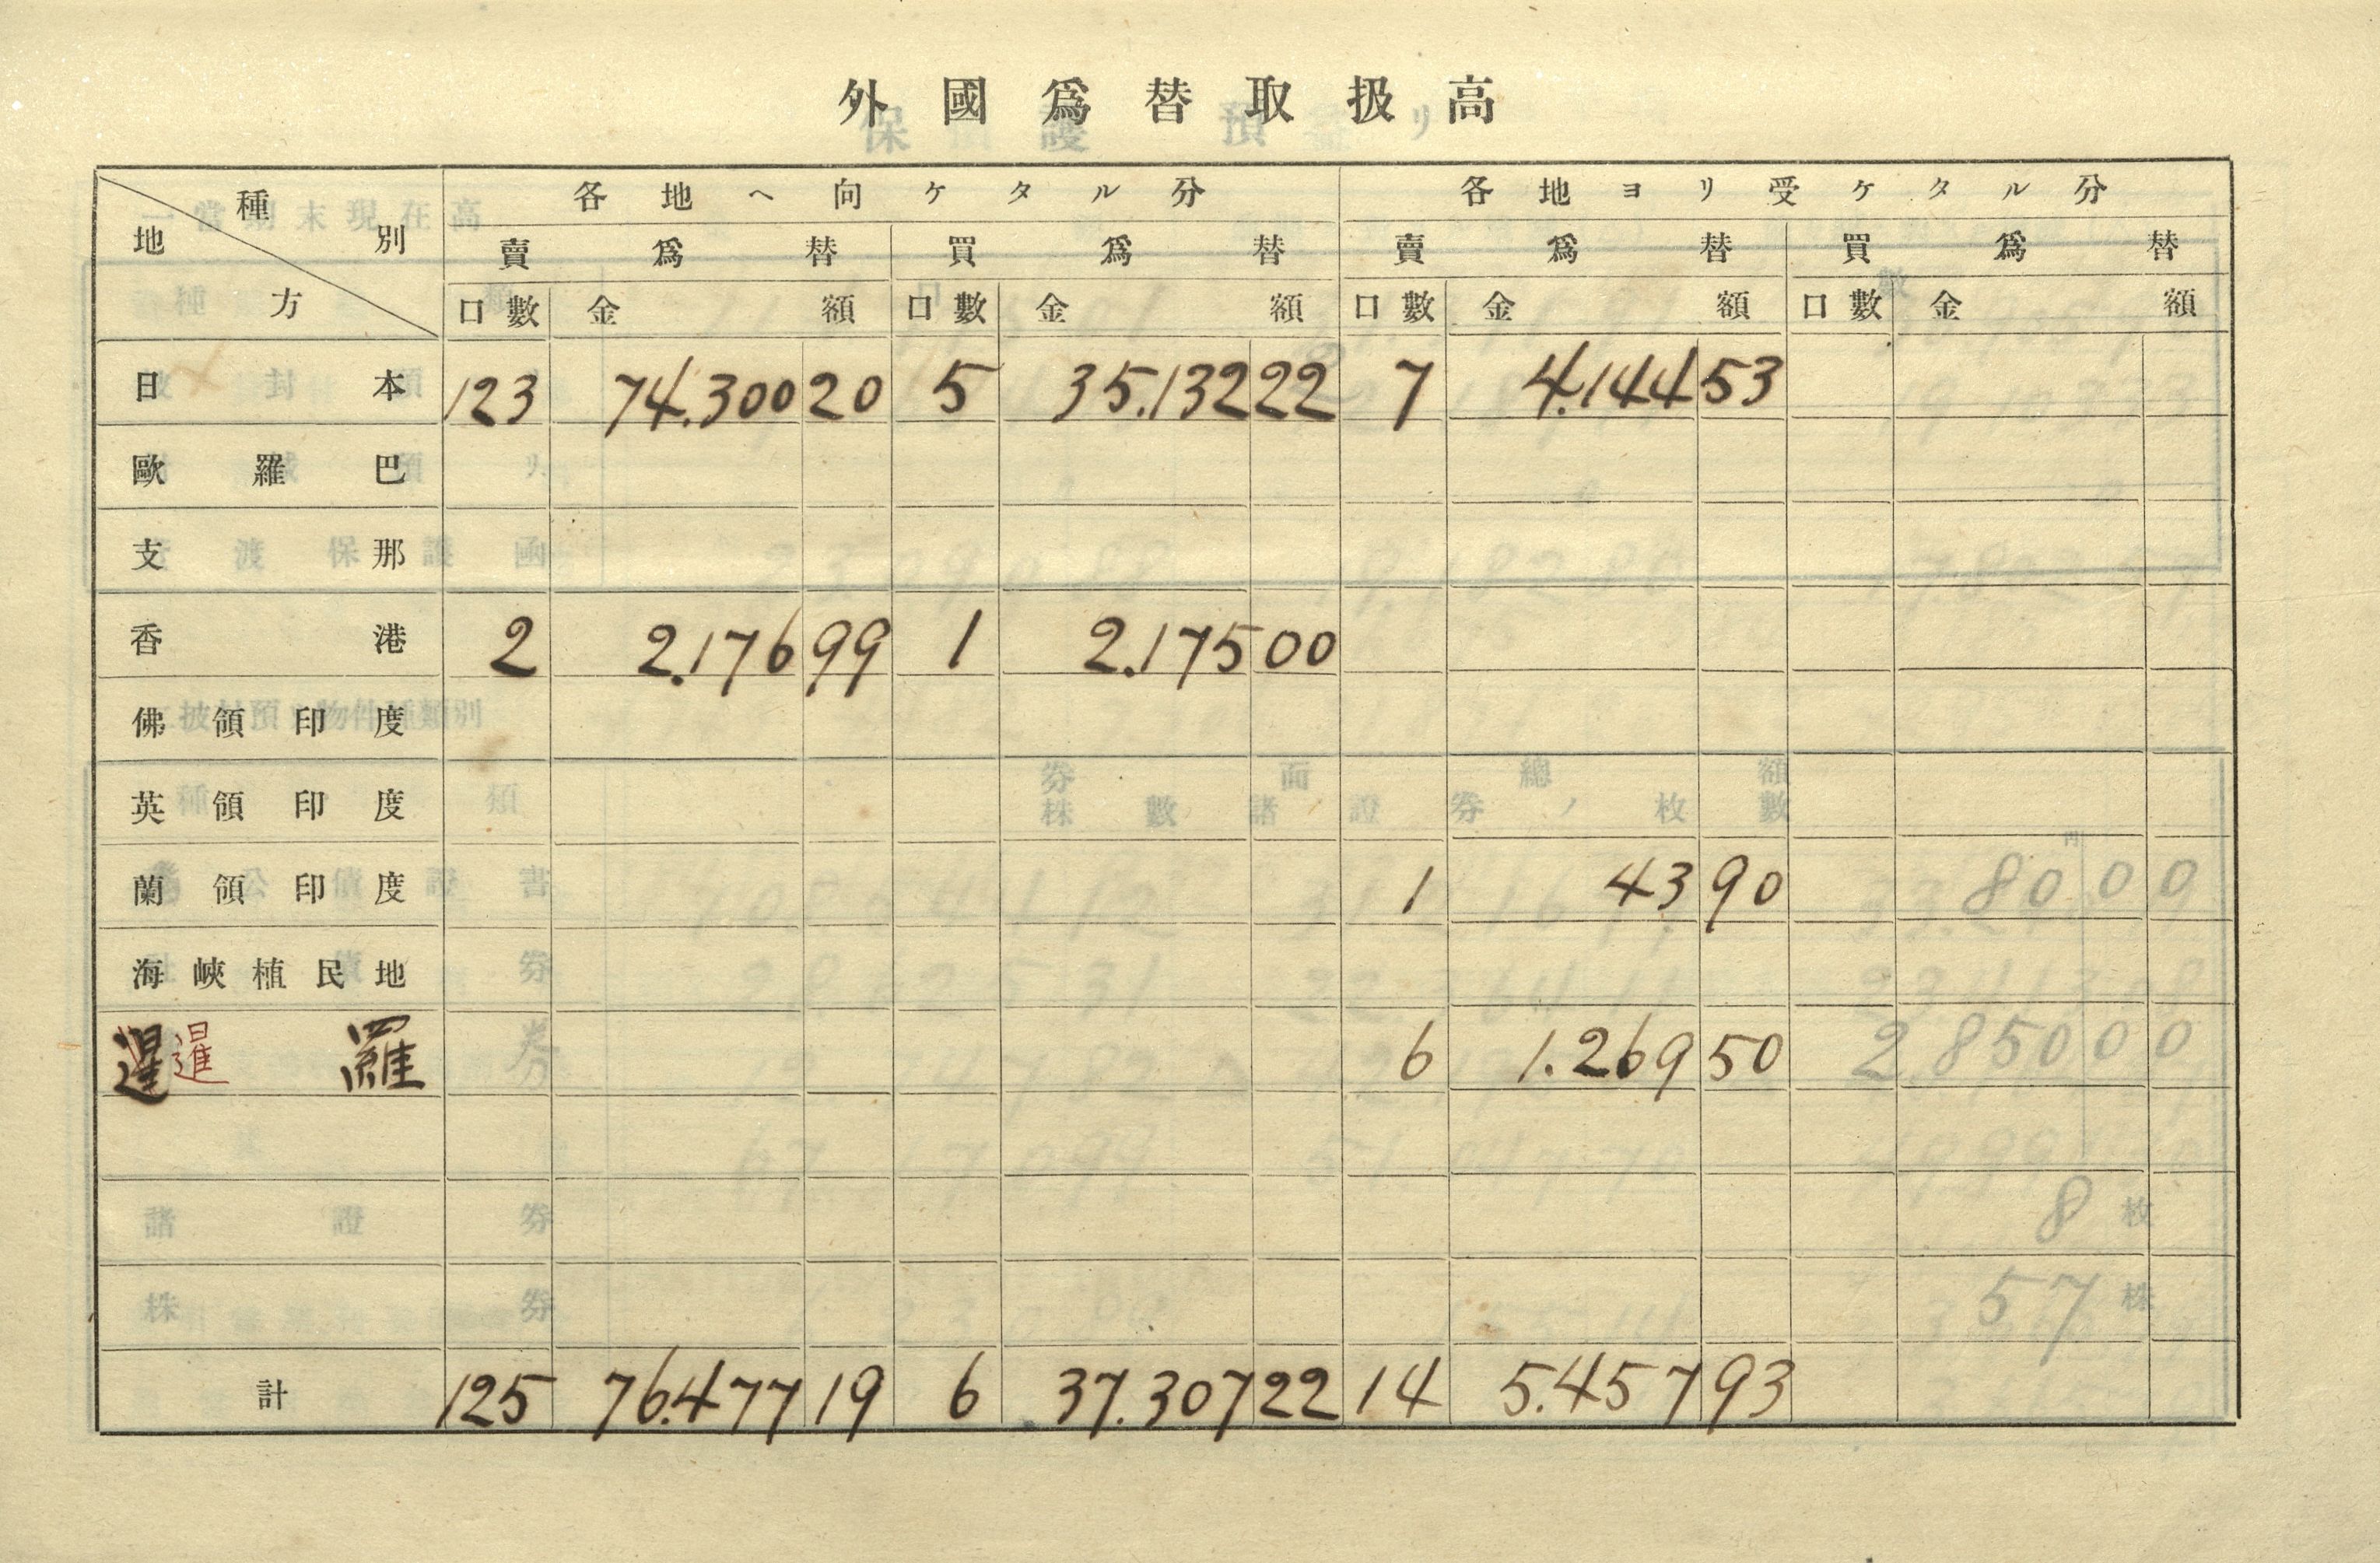 外國爲替取扱高
種別 地方 各地ヘ向ケタル分 各地ヨリ受ケタル分
賣爲替 買爲替 賣爲替 買爲替
口數 金額 口數 金額 口數 金額 口數 金額
日本 123 74.300 20 5 35.132 22 7 4.144 53
歐羅巴
支那
香港 2 2.176 99 1 2.175 00
佛領印度
英領印度
蘭領印度 1 43 90
海峽植民地
暹 暹羅 6 1.269 50
計 125 76.477 19 6 37.307 22 14 5.457 93